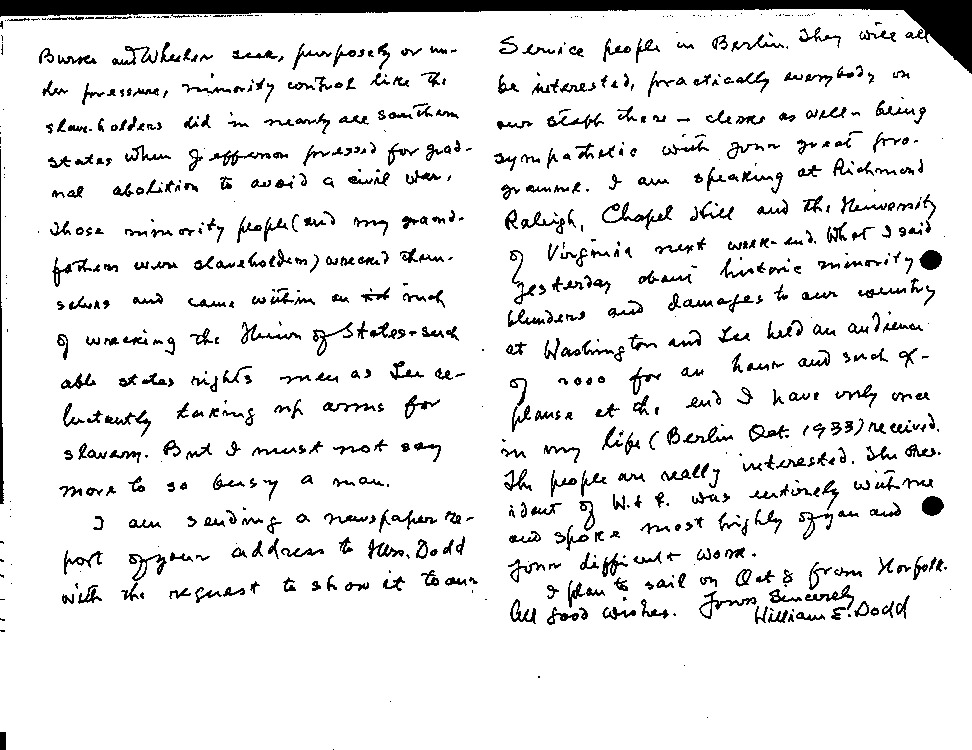 Burke and Wheeler seek, purposely or un-
der pressure, minority control like the
slave-holders did in nearly all southern
states when Jefferson pressed for grad-
ual abolition to avoid a civil war.
Those minority people (and my grand-
fathers were slaveholders) wrecked them-
selves and came within an inch
of wrecking the Union of States—such
able states rights men as Lee re-
luctantly taking up arms for
slavery. But I must not say
more to so busy a man.
I am sending a newspaper re-
port of your address to Mrs. Dodd
with the request to show it to our
Service people in Berlin. They will all
be interested, practically everybody on
our staff there – clerks as well – being
sympathetic with your great pro-
gramme. I am speaking at Richmond
Raleigh, Chapel Hill and the University
of Virginia next week-end. What I said
yesterday about historic minority
blunders and damages to our country
at Washington and Lee held an audience
of 2000 for an hour and such ap-
plause at the end I have only once
in my life (Berlin Oct. 1933) received.
The people are really interested. The Pres-
ident of W. & L. was entirely with me
and spoke most highly of you and
your difficult work.
I plan to sail on Oct 8 from Norfolk.
All good wishes. Yours Sincerely
William E. Dodd